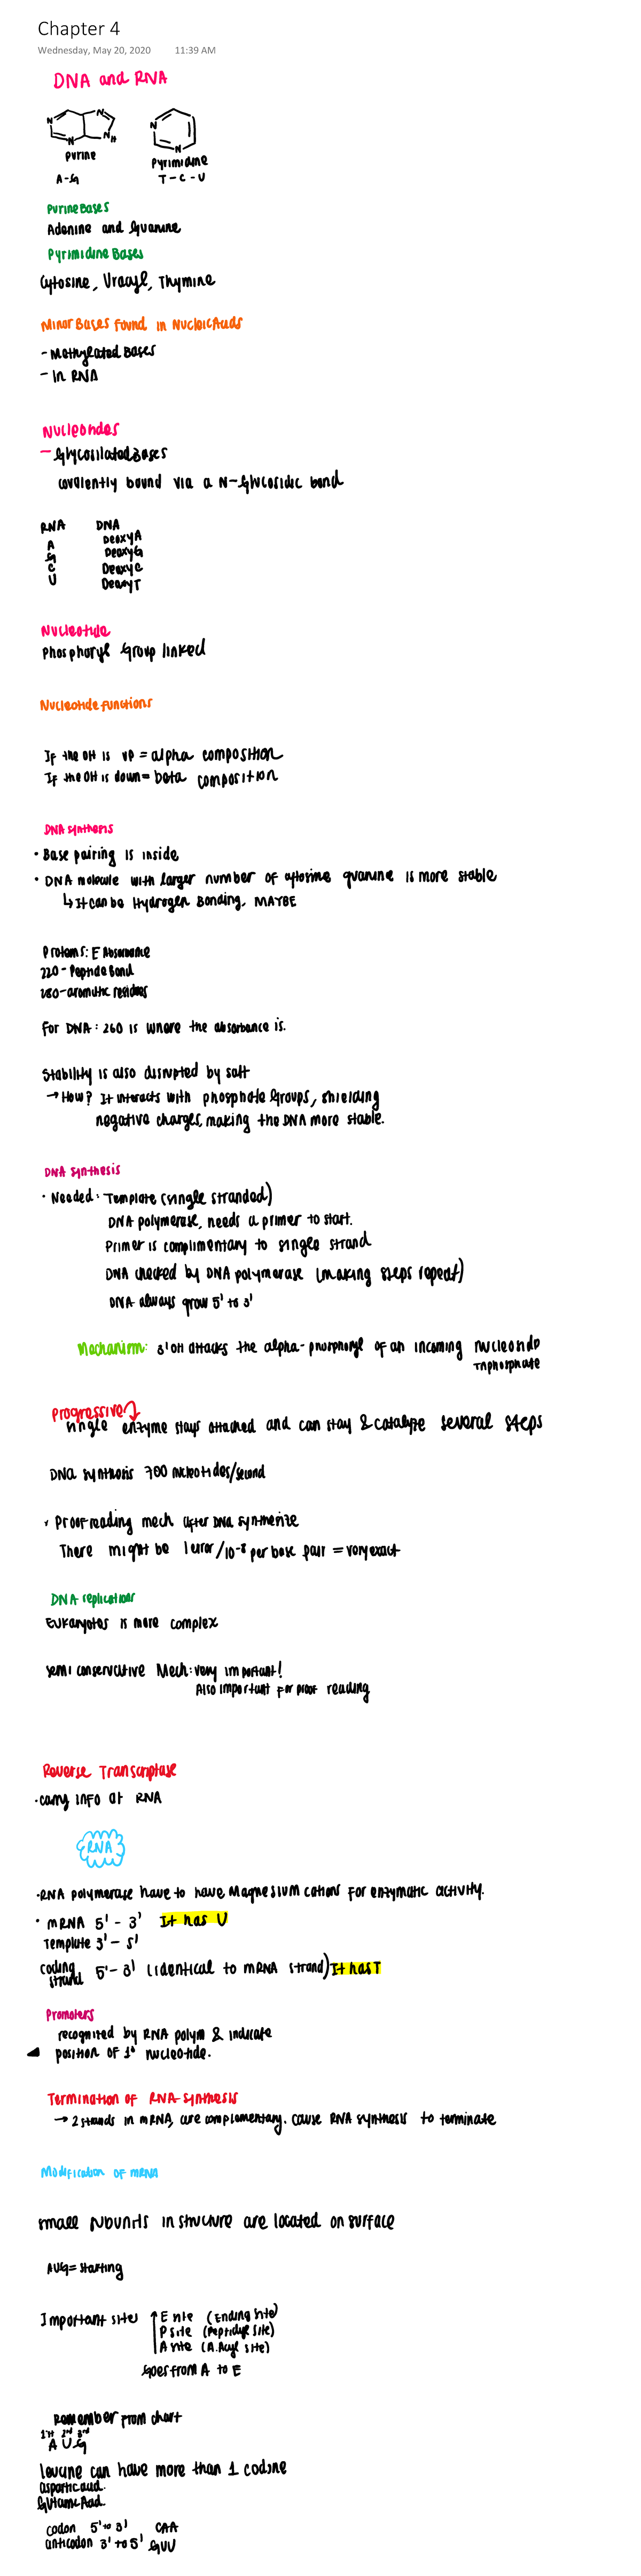 Chapter 4
Wednesday, May 20, 2020 11:39 AM
DNA and RNA
N N N N H
Purine
A-G
N N
Pyrimidine
T-C-U
Purine Bases
Adenine and Guanine
Pyrimidine Bases
Cytosine, Uracyl, Thymine
Minor Bases found in Nucleic Acids
- Methylated Bases
- In RNA
Nucleosides
- Glycosilated Bases
covalently bound via a N-Glycosidic bond
RNA DNA
A DeoxyA
G DeoxyG
C DeoxyC
U DeoxyT
Nucleotide
Phosphoryl Group linked
Nucleotide functions
If the OH is up = alpha composition
If the OH is down = beta composition
DNA synthesis
• Base pairing is inside
• DNA molecule with larger number of cytosine guanine is more stable
↳ It can be Hydrogen Bonding, MAYBE
Proteins: E Absorbance
220 - Peptide Bond
280 - aromatic residues
For DNA: 260 is where the absorbance is.
Stability is also disrupted by salt
→ How? It interacts with phosphate Groups, shielding
negative charges, making the DNA more stable.
DNA synthesis
• Needed: Template (single stranded)
DNA polymerase, needs a primer to start.
Primer is complimentary to single strand
DNA checked by DNA polymerase (making steps repeat)
DNA always grow 5' to 3'
Mechanism: 3' OH attacks the alpha-phosphoryl of an incoming nucleoside
Triphosphate
Progressive
single enzyme stays attached and can stay & catalyze several steps
DNA synthesis 700 nucleotides/second
• Proofreading mech after DNA synthesize
There might be 1 error/10⁻⁸ per base pair = very exact
DNA replication
Eukaryotes is more complex
semi conservative Mech: very important!
Also important for proof reading
Reverse Transcriptase
• carry info at RNA
RNA
• RNA polymerase have to have Magnesium cations for enzymatic activity.
• mRNA 5' - 3' It has U
Template 3' - 5'
coding strand 5' - 3' (identical to mRNA strand) It has T
Promoters
recognited by RNA polym & indicate
position of 1st nucleotide.
Termination of RNA synthesis
→ 2 strands in mRNA, are complementary. cause RNA synthesis to terminate
Modification of mRNA
small in structure are located on surface
AUG = starting
Important sites ↑ E site (Ending site)
P site (Peptidyl site)
A site (A.Acyl site)
Goes from A to E
Remember from chart
1st 2nd 3rd
A U G
leucine can have more than 1 codone
aspartic acid.
Glutamic Acid.
codon 5' to 3' CAA
anticodon 3' to 5' GUU